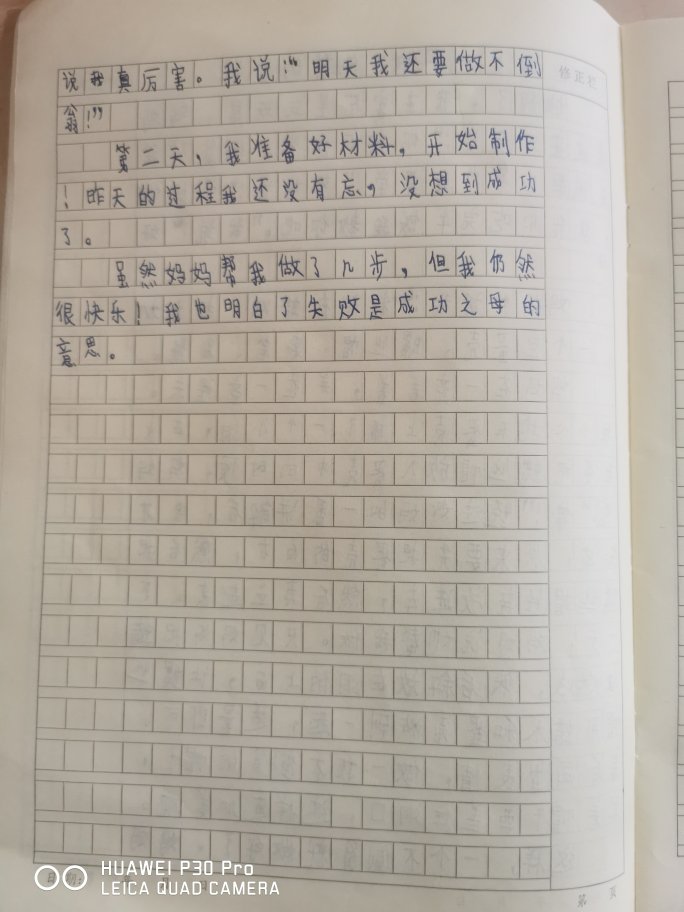 说我真厉害。我说:“明天我还要做不倒
翁!”
第二天,我准备好材料,开始制作
!昨天的过程我还没有忘,没想到成功
了。
虽然妈妈帮我做了几步,但我仍然
很快乐!我也明白了失败是成功之母的
意思。
修正栏
第 页
HUAWEI P30 Pro
LEICA QUAD CAMERA